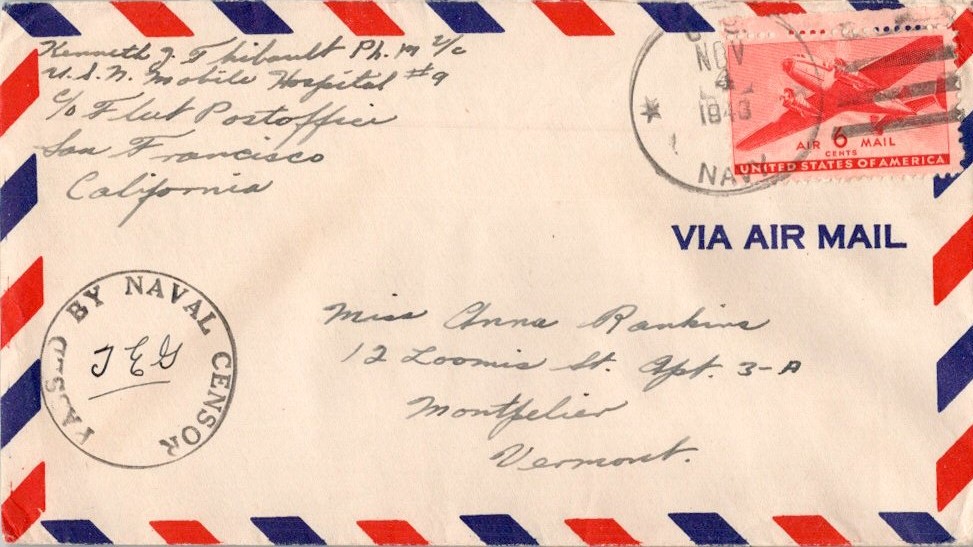 Kenneth J. Thibault Ph. M 2/c
U.S.N. Mobile Hospital #9
c/o Fleet Postoffice
San Francisco
California
NOV
4
1943
NAVY
AIR 6 MAIL
CENTS
UNITED STATES OF AMERICA
VIA AIR MAIL
PASSED BY NAVAL CENSOR
Miss Anna Rankins
12 Loomis St. Apt. 3-A
Montpelier
Vermont.